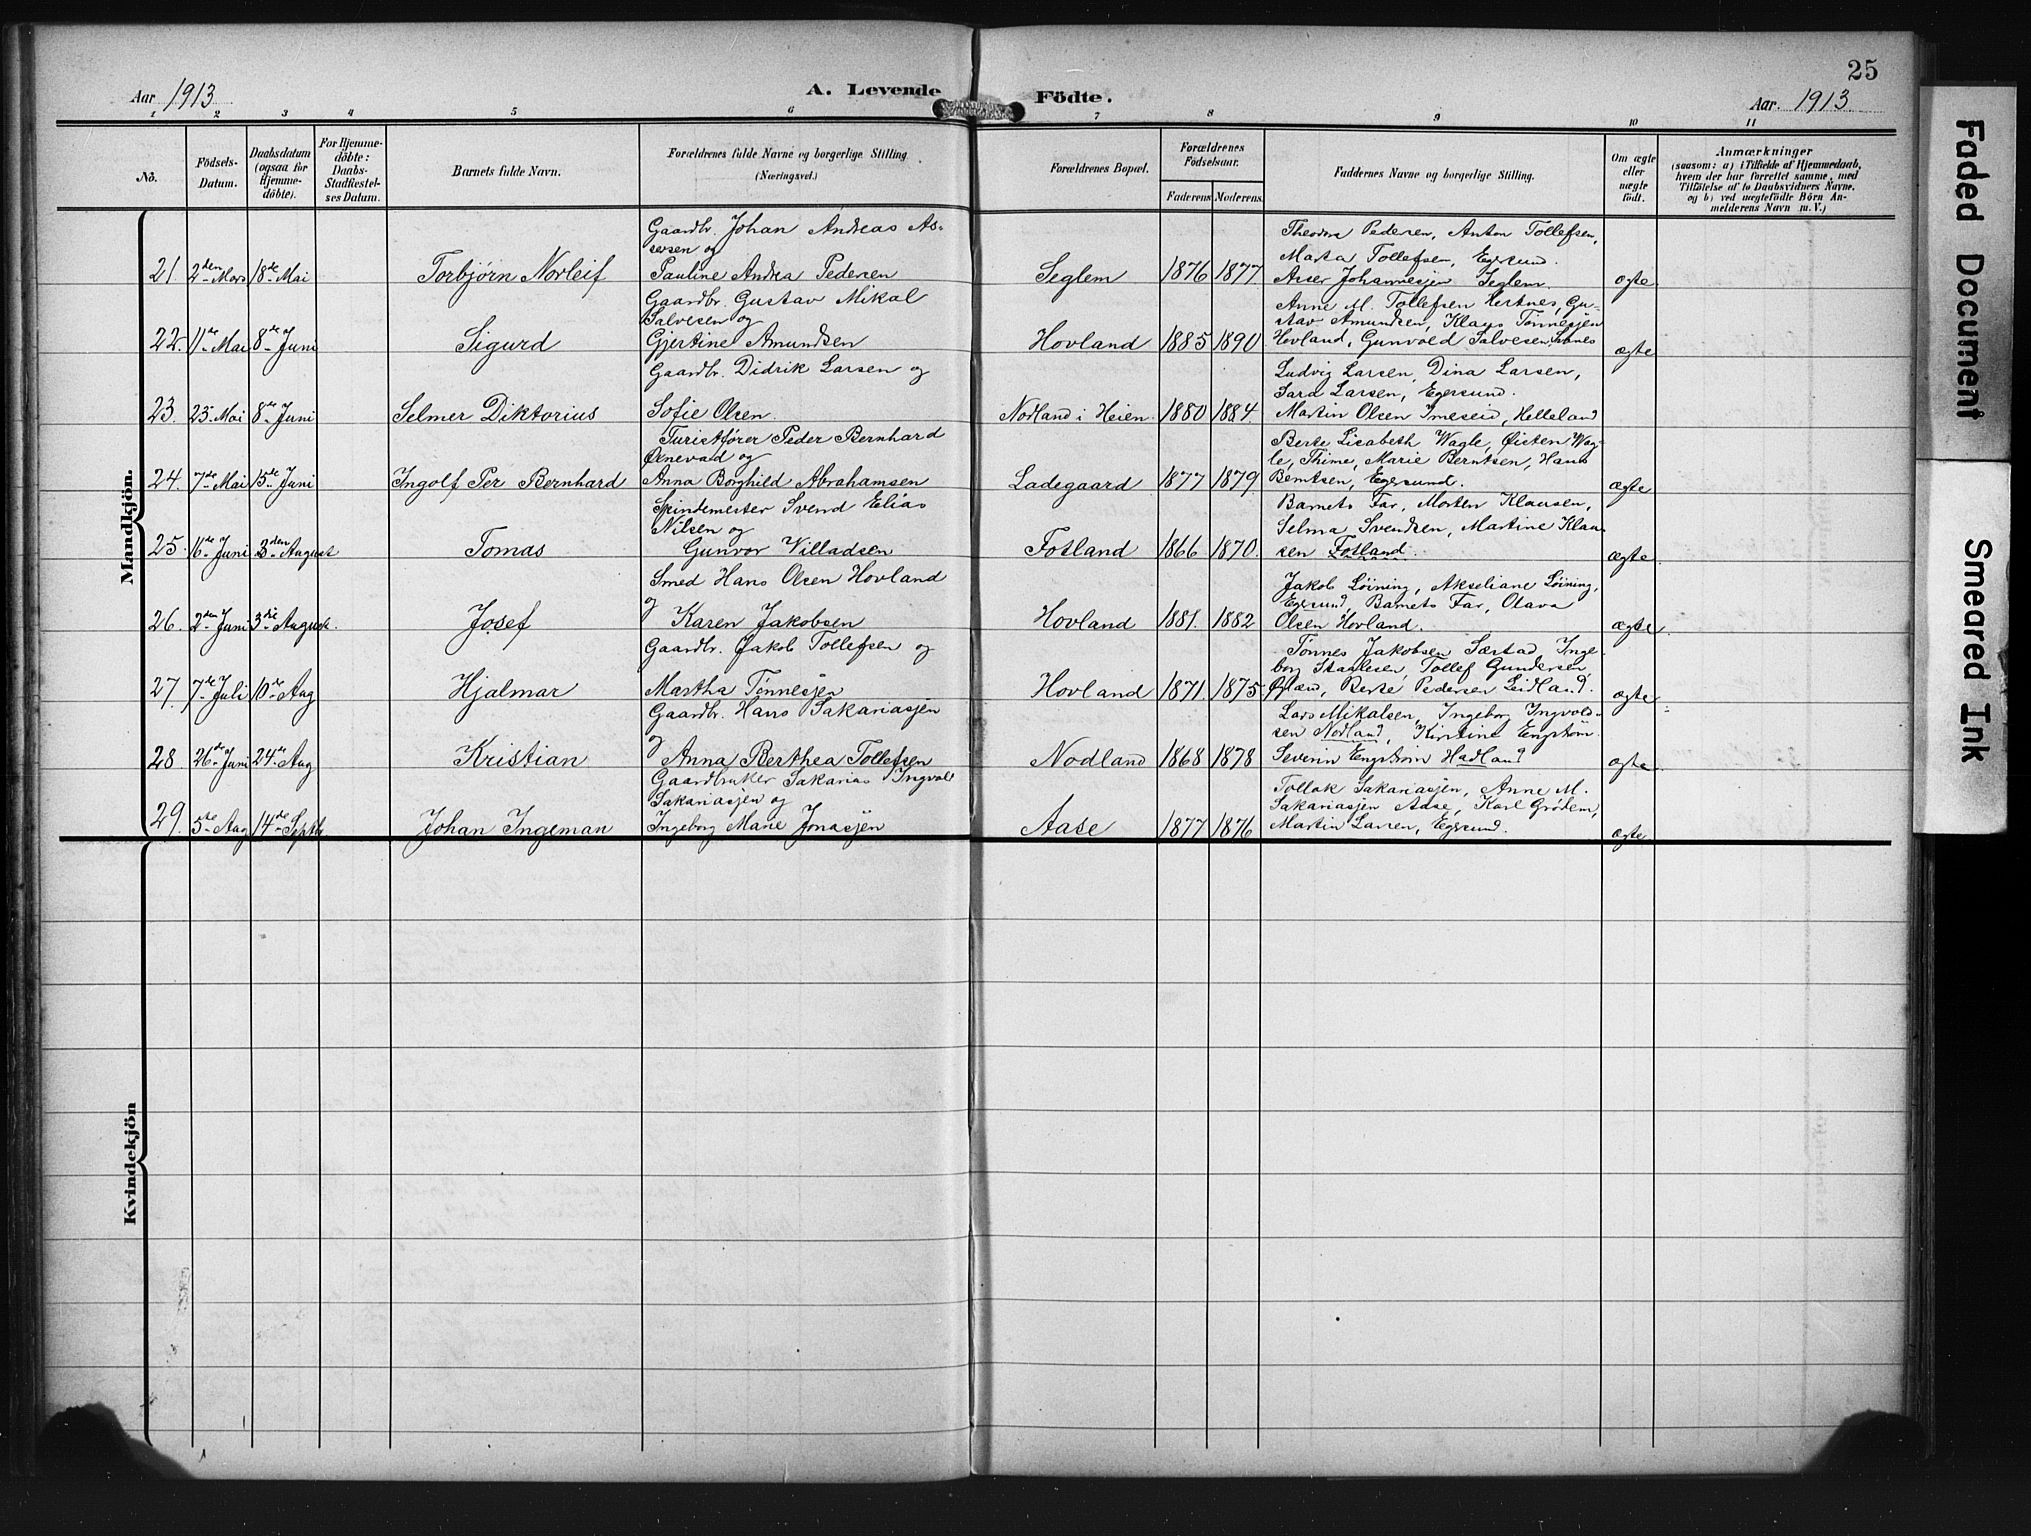 25
Aar 1913
A. Levende Födte.
Aar. 1913
1 2 3 4 5 6 7 8 9 10 11
No.
Födsels-
Datum.
Daabsdatum
(ogsaa for
Hjemme-
döbte).
For Hjemme-
döbte:
Daabs-
Stadfæstel-
ses Datum.
Barnets fulde Navn.
Forældrenes fulde Navne og borgerlige Stilling
(Næringsvei.)
Forældrenes Bopæl.
Forældrenes
Födselsaar.
Faderens Moderens
Faddernes Navne og borgerlige Stilling.
Om ægte
eller
uægte
födt.
Anmærkninger
(saasom: a) i Tilfælde af Hjemmedaab,
hvem der har forrettet samme, med
Tilföielse af to Daabsvidners Navne.
og b) ved uægtefödte Börn An-
melderens Navn m. V.)
Mandkjön.
21. 2den Mars 18de Mai
Torbjørn Norleif
Gaardbr. Johan Andreas As-
sersen og
Pauline Andrea Pedersen
Seglem
1876 1877
Theodora Pedersen, Anton Tollefsen,
Marta Tollefsen, Egersund.
Asser Johannesjen Seglem
ægte
22. 11te Mai 8de Juni
Sigurd
Gaardbr. Gustav Mikal
Salvesen og
Gjertine Amundsen
Hovland
1885 1890
Anne M. Tollefsen Hertnes, Gu-
stav Amundsen, Klaus Tønnesjen
Hovland, Gunvald Salvesen,
ægte
23. 23de Mai 8de Juni
Selmer Diktorius
Gaardbr. Didrik Larsen og
Sofie Olsen.
Nodland i Heien
1880 1884.
Ludvig Larsen, Dina Larsen,
Sara Larsen, Egersund.
Martin Olsen Imeseid, Helleland
ægte
24. 7de Mai 15de Juni
Ingolf Per Bernhard
Turistfører Peder Bernhard
Ørnevad og
Anna Borghild Abrahamsen
Ladegaard
1877 1879
Berte Lisabeth Wagle, Øisten Wag-
le, Thime, Marie Berntsen, Hans
Berntsen, Egersund.
ægte
25. 16de Juni 3den August
Tomas
Spindemester Svend Elias
Nilsen og
Gunvor Villadsen
Fotland
1866 1870.
Barnets Far, Morten Klausen,
Selma Svendsen, Martine Klau-
sen Fotland.
ægte
26. 2den Juni 3die August.
Josef
Smed Hans Olsen Hovland
og
Karen Jakobsen
Hovland
1881. 1882
Jakob Löining, Akseliane Löining,
Egersund, Barnets Far, Olava
Olsen Hovland.
ægte.
27. 7de Juli 10de Aug
Hjalmar
Gaardbr. Jakob Tollefsen og
Martha Tønnesjen
Hovland
1871. 1875.
Tønnes Jakobsen Sæstad, Inge-
borg Staalesen, Tollef Gundersen
Berte Pedersen Leidland.
ægte
28 26de Juni 24de Aug
Kristian
Gaardbr. Hans Sakariasjen
og
Anna Berthea Tollefsen
Nodland
1868 1878
Lars Mikalsen, Ingeborg Ingvols-
sen Nodland, Kirstine Engstrøm.
Severin Engstrøm Hadland
ægte.
29. 5te Aug 14de Septbr
Johan Ingeman
Gaardbruker Sakarias Ingval
Sakariasjen og
Ingeborg Marie Jonasjen
Aase
1877 1876
Tollak Sakariasjen, Anne M.
Sakariasjen Aase, Karl Grödem,
Martin Larsen, Egersund.
ægte
Kvindekjön
Faded Document
Smeared Ink